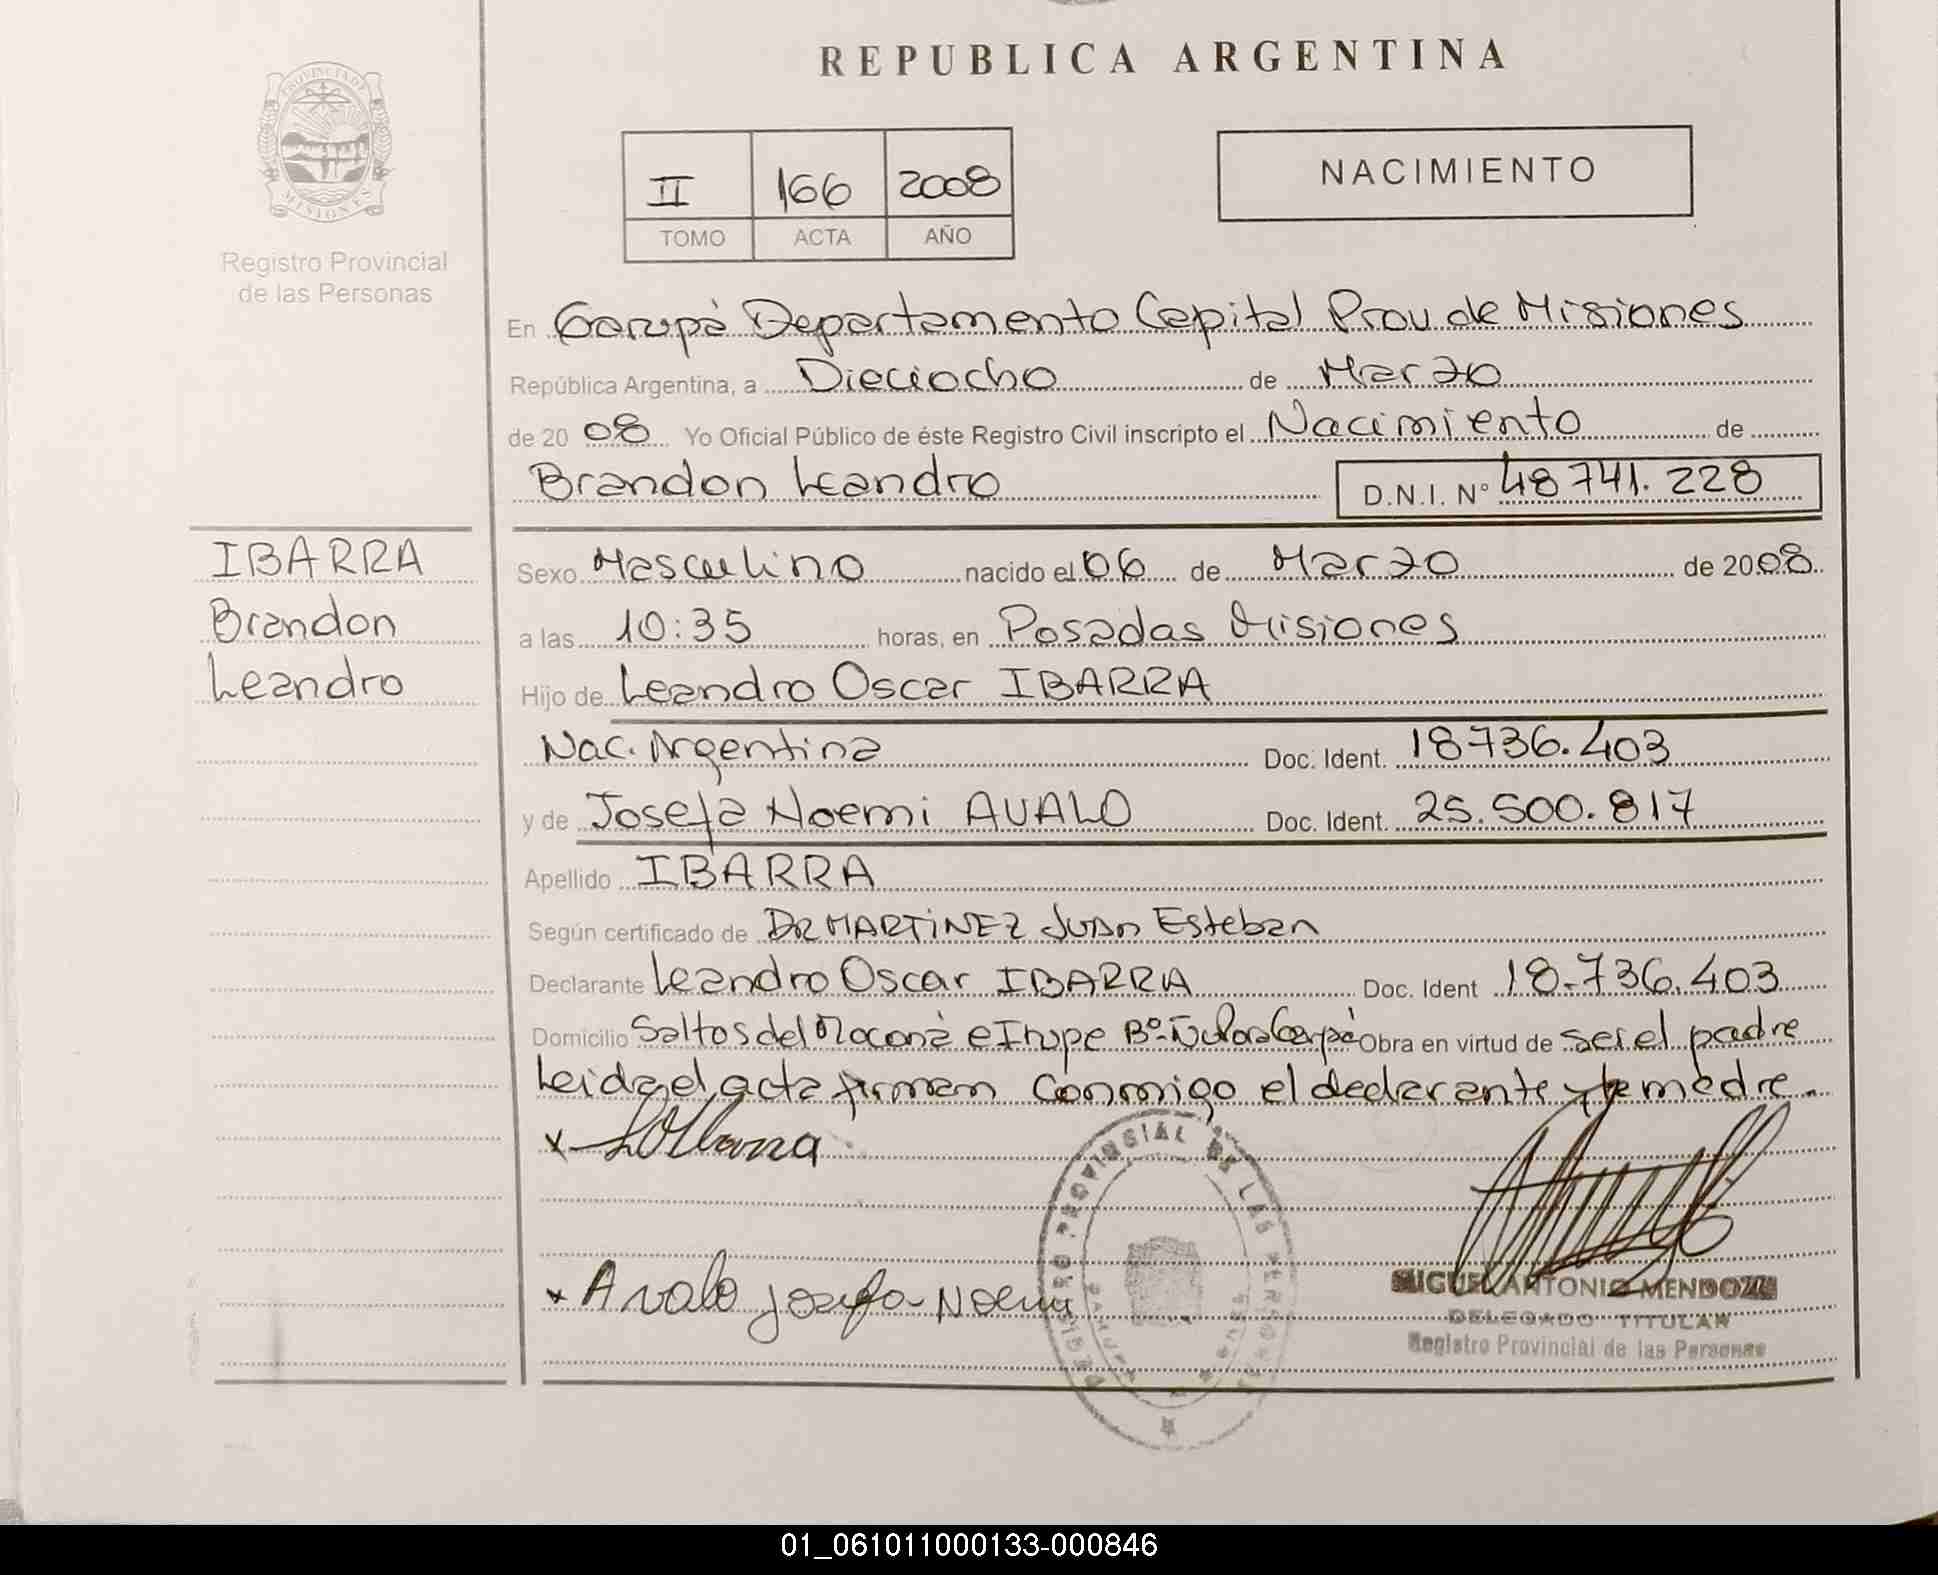 REPUBLICA ARGENTINA
PROVINCIA DE
MISIONES
Registro Provincial
de las Personas
II 166 2008
TOMO ACTA AÑO
NACIMIENTO
En Garupà Departamento Capital Prov de Misiones
República Argentina, a Dieciocho de Marzo
de 20 08 Yo Oficial Público de éste Registro Civil inscripto el Nacimiento de
Brandon Leandro D.N.I. Nº 48741.228
IBARRA
Brandon
Leandro
Sexo Masculino nacido el 06 de Marzo de 2008
a las 10:35 horas, en Posadas Misiones
Hijo de Leandro Oscar IBARRA
Nac. Argentina Doc. Ident. 18736.403
y de Josefa Noemi AVALO Doc. Ident. 25.500.817
Apellido IBARRA
Según certificado de DR MARTINEZ Juan Esteban
Declarante Leandro Oscar IBARRA Doc. Ident 18.736.403
Domicilio Saltos del Moconà e Irupe Bº Obra en virtud de ser el padre
Leida el acta firman conmigo el declarante y la madre.
x
x Avalo Josefa Noemi
REGISTRO PROVINCIAL DE LAS PERSONAS
MIGUEL ANTONIO MENDOZA
DELEGADO TITULAR
Registro Provincial de las Personas
01_061011000133-000846